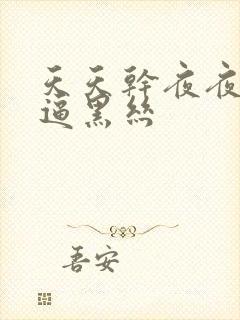 天天幹夜夜
逼黑絲
吾安